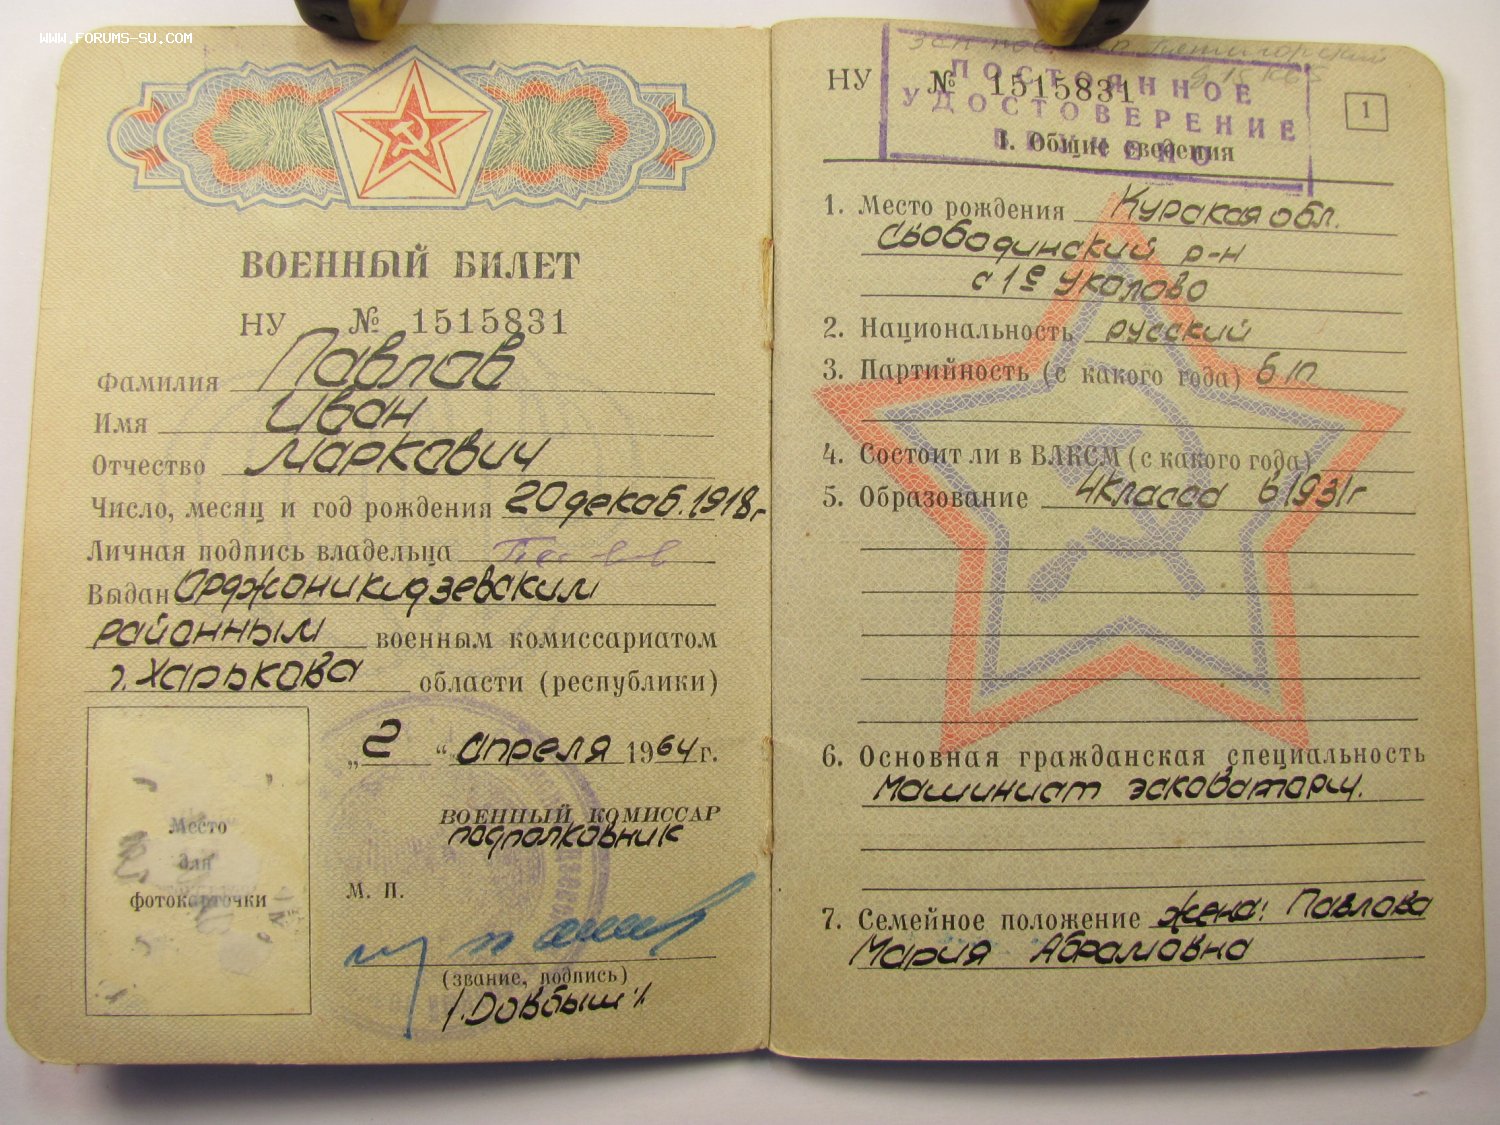 WWW.FORUMS-SU.COM
ВОЕННЫЙ БИЛЕТ
НУ № 1515831
Фамилия Павлов
Имя Иван
Отчество Маркович
Число, месяц и год рождения 20 декаб. 1918 г.
Личная подпись владельца
Выдан Орджоникидзевским
районным военным комиссариатом
г. Харькова области (республики)
„2“ апреля 1964 г.
ВОЕННЫЙ КОМИССАР
подполковник
Место
для
фотокарточки
М. П.
(звание, подпись)
/.Довбыш./
НУ № 1515831
ПОСТОЯННОЕ
УДОСТОВЕРЕНИЕ
ВРУЧЕНО
1
I. Общие сведения
1. Место рождения Курская обл.
Свободинский р-н
с 1е Уколово
2. Национальность русский
3. Партийность (с какого года) б/п
4. Состоит ли в ВЛКСМ (с какого года)
5. Образование 4 класса в 1931 г
6. Основная гражданская специальность
Машинист эскаватора
7. Семейное положение жена: Павлова
Мария Абрамовна